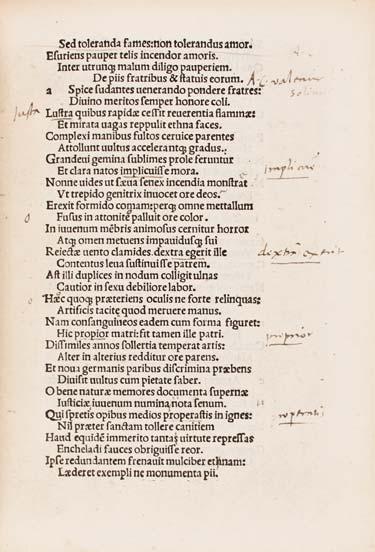 Sed toleranda fames: non tolerandus amor.
Esuriens pauper telis incendor amoris.
Inter utrunq; malum diligo pauperiem.
De piis fratribus & statuis eorum.
a Spice sudantes uenerando pondere fratres:
Diuino meritos semper honore coli.
Iusta
Lustra quibus rapidæ cessit reuerentia flammæ:
Et mirata uagas reppulit ethna faces.
Complexi manibus fultos ceruice parentes
Attollunt uultus accelerantq; gradus.
Grandeui gemina sublimes prole feruntur
Et clara natos implicuisse mora.
Nonne uides ut sæua senex incendia monstrat
Vt trepido genitrix inuocet ore deos.
Erexit formido comam: perq; omne metallum
Fusus in attonito palluit ore color.
In iuuenum mēbris animosus cernitur horror
Atq; omen metuens impauidusq; sui
Reiectæ uento clamides. dextra egerit ille
dextra exerit
Contentus leua sustinuisse patrem.
Ast illi duplices in nodum colligit ulnas
Cautior in sexu debiliore labor.
Hæc quoq; præteriens oculis ne forte relinquas:
Artificis tacitę quod meruere manus.
Nam consanguineos eadem cum forma figuret:
Hic propior matri: fit tamen ille patri.
propior
Dissimiles annos sollertia temperat artis:
Alter in alterius redditur ore parens.
Et noua germanis paribus discrimina præbens
Diuisit uultus cum pietate faber.
O bene naturæ memores documenta supernæ
Iusticiæ iuuenum numina, uota senum.
Qui spretis opibus medios properastis in ignes:
Nil præter sanctam tollere canitiem
Haud equidē immerito tantas uirtute repressas
Encheladi fauces obriguisse reor.
Ipse redundantem frenauit mulciber ethnam:
Læderet exempli ne monumenta pii.